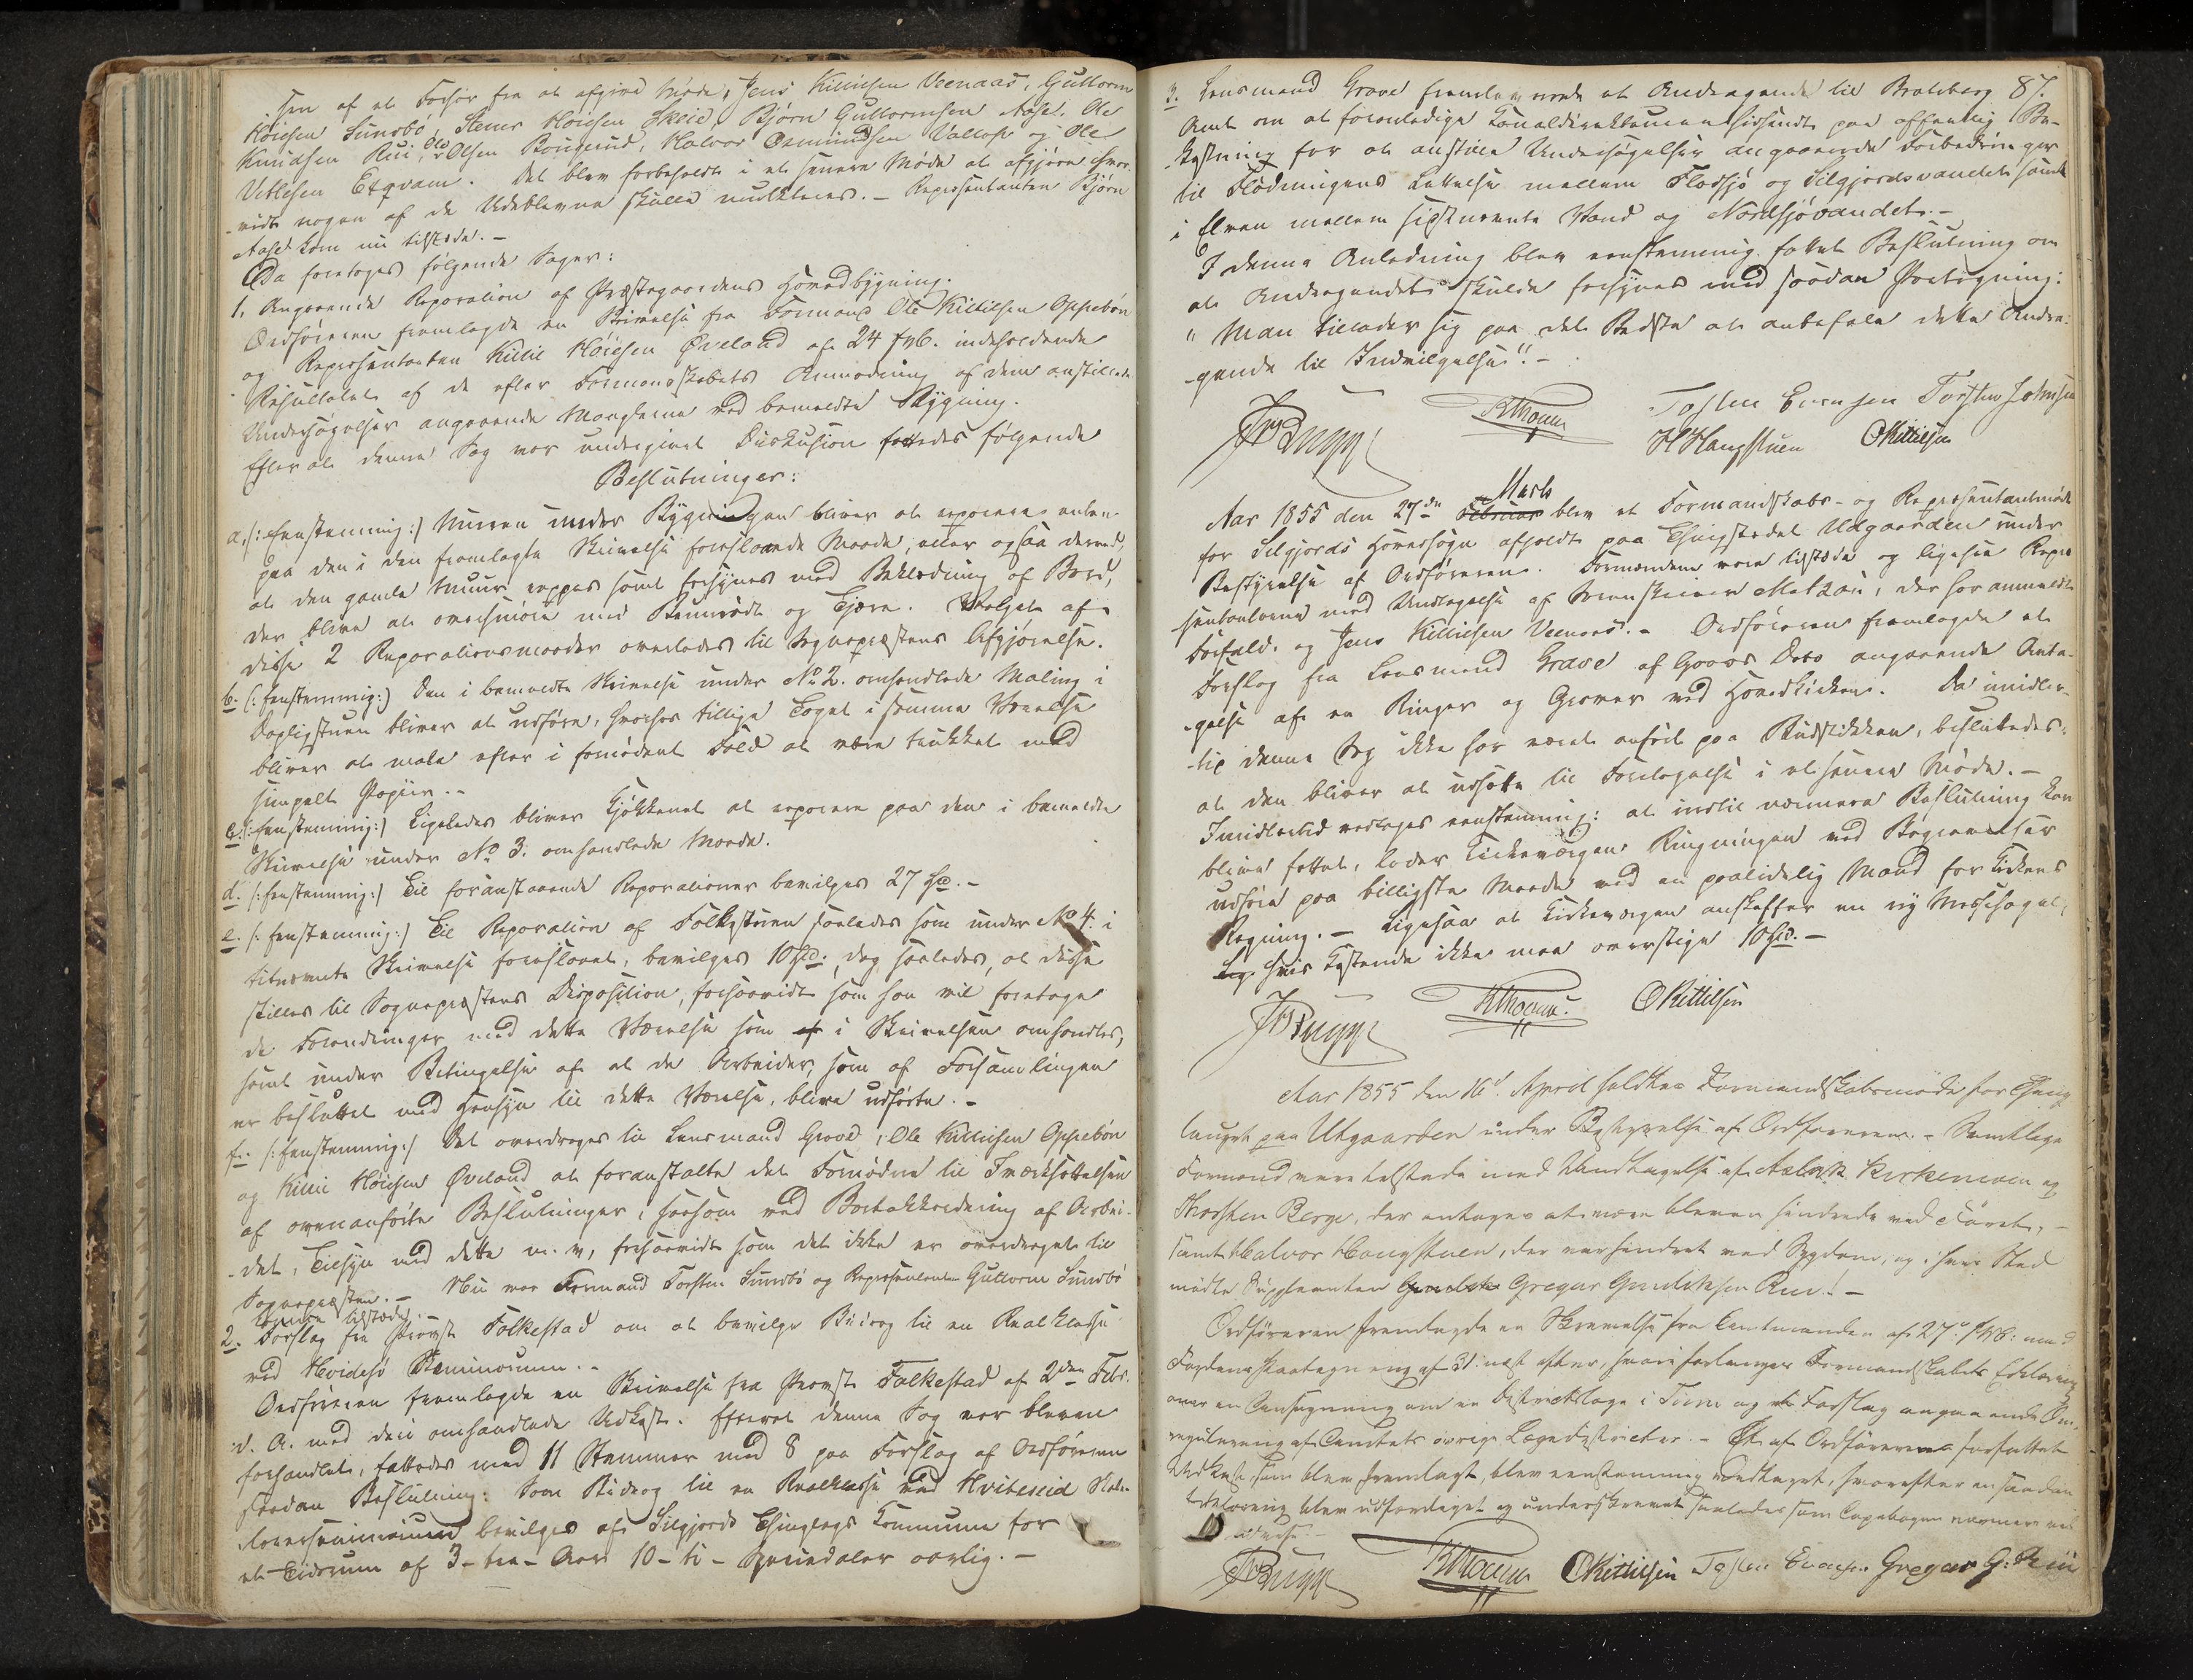 sen af et Forfør fra at afgive Møde, Jens Kittilsen Veenaas, Guttorm
Høiesen Sundbö, Stener Høiesen Skeie, Bjørn Guttormsen Aase, Ole
Knudsen Rui, Ole Olsen Bougerud, Halvor Osmundsen Vallose og Ole
Vetlesen Etqvam. Det blev forbeholdt i et senere Møde at afgjøre hvor-
vidt nogen af de Udeblevne skulle mulkteres. – Repræsentanten Bjørn
Aase kom nu tilstede. –
Da foretoges følgende Sager:
1. Angaaende Reparation af Præstegaardens Hovedbygning.
Ordføreren fremlagde en Skrivelse fra Formand Ole Kittilsen Oppebøn
og Repræsentanten Kittil Høiesen Øveland af 24 Feb. indeholdende
Resultatet af de efter Formandskabets Anmodning af dem anstillede
Undersøgelser angaaende Manglerne ved bemeldte Bygning.
Efter at denne Sag var undergivet Diskusion fattedes følgende
Beslutninger:
a. /:Eenstemmig:/ Muren under Bygningen bliver at reparere enten
paa den i den fremlagte Skrivelse foreslaaede Maade, eller ogsaa derved,
at den gamle Muur rappes samt forsynes med Beklædning af Bord,
der blive at oversmøre med Bruunrødt og Tjære. Valget af
disse 2 Reparationsmaader overlades til Sognepræstens Afgjørelse.
b. (:Eenstemmig:) Den i bemeldte Skrivelse under No 2. omhandlede Maling i
Dagligstuen bliver at udføre, hvorhos tillige Taget i samme Værelse
bliver at male efter i fornødent Fald at være trukket med
simpelt Papiir. –
c. /:Eenstemmig:/ Ligeledes bliver Kjøkkenet at reparere paa den i bemeldte
Skrivelse under No 3. omhandlede Maade.
d. /:Eenstemmig:/ Til foranstaaende Reparationer bevilges 27 Spd. –
e. /:Eenstemmig:/ Til Reparation af Folkestuen saaledes som under No 4. i
titnævnte Skrivelse foreslaaet, bevilges 10 Spd., dog saaledes, at disse
stilles til Sognepræstens Disposition, forsaavidt som han vil foretage
de Forandringer med dette Værelse som i Skrivelsen omhandles,
samt under Betingelse af at de Arbeider, som af Forsamlingen
er besluttet med Hensyn til dette Værelse, blive udførte. –
f. /:Eenstemmig:/ Det overdrages til Lensmand Grave, Ole Kittilsen Oppebøn
og Kittil Høiesen Øveland at foranstalte det Fornødne til Iværksættelsen
af ovenanførte Beslutninger, saasom ved Bortakkordering af Arbei-
det, Tilsyn med dette m. v., forsaavidt som det ikke er overdraget til
Sognepræsten. – Nu var Formand Torsten Sundbö og Repræsentanten Guttorm Sundbö
komne tilstede. –
2. Forslag fra Provst Folkestad om at bevilge Bidrag til en Realklasse
ved Hvidesø Seminarium. –
Ordføreren fremlagde en Skrivelse fra Provst Folkestad af 2den Febr.
d. A. med deri omhandlede Udkast. Efterat denne Sag var bleven
forhandlet, fattedes med 11 Stemmer mod 8 paa Forslag af Ordføreren
saadan Beslutning: Som Bidrag til en Realklasse ved Hviteseid Skole-
lærerseminarium bevilges af Silgjords Thinglags Kommune for
et Tidsrum af 3 – tre – Aar 10 – ti – Speciedaler aarlig. –
87.
3. Lensmand Grave fremlagde et Andragende til Bratsberg
Amt om at foranledige Kanaldirekteuren hidsendt paa offentlig Be-
kostning for at anstille Undersøgelser angaaende Forbedringer
til Flødningens Lettelse mellem Flodsjø og Silgjordsvandet samt
i Elven mellem sidstnævnte Vand og Nordsjøvandet. –
I denne Anledning blev eenstemmig fattet Beslutning om
at Andragendet skulde forsynes med saadan Paategning:
"Man tillader sig paa det Bedste at anbefale dette Andra-
gende til Indvilgelse". –
Tosten Evensen Torsten Johnsen
H Haugstuen OKittilsen
Aar 1855 den 27de Februar Marts blev et Formandskabs- og Repræsentantmøde
for Silgjords Hovedsogn afholdt paa Thingstedet Udgaarden under
Bestyrelse af Ordføreren. Formændene vare tilstede og ligesaa Repræ-
sentanterne med Undtagelse af Sorenskriver Matzau, der har anmeldt
Forfald, og Jens Kittilsen Veenaas. – Ordføreren fremlagde et
Forslag fra Lensmand Grave af Gaars Dato angaaende Anta-
gelse af en Ringer og Graver ved Hovedkirken. Da imidler-
tid denne Sag ikke har været anført paa Budstikken, besluttedes:
at den bliver at udsætte til Foretagelse i et senere Møde. –
Imidlertid vedtoges eenstemmig: at indtil nærmere Beslutning kan
blive fattet, lader Kirkeværgen Ringningen ved Begravelser
udføre paa billigste Maade ved en paalidelig Mand for Kirkens
Regning. – Ligesaa at Kirkeværgen anskaffer en ny Messehagel,
hvis Kostende ikke maa overstige 10 Spd. –
OKittilsen
Aar 1855 den 16d April holdtes Formandskabsmøde for Thing
lauget paa Utgaarden under Bestyrelse af Ordføreren. – Samtlige
Formænd vare tilstede med Undtagelse af Aslak Kirkemoen og
Thorsten Berge, der antages at være bleven hindrede ved Føret, –
samt Halvor Haugstuen, der var hindret ved Sygdom, og i hvis Sted
mødte Suppleanten Gregar Gunleiksen Rui. –
Ordføreren fremlagde en Skrivelse fra Amtmanden af 27de Feb: med
Fogdens Paategning af 31 næst efter, hvori forlanges Formandskabets Erklæring
over en Ansøgning om en Distriktslæge i Tinn og et Forslag angaaende Om-
regulering af Amtets øvrige Lægedistrikter. – Et af Ordføreren forfattet
Udkast, som blev fremlagt, blev eenstemmig vedtaget, hvorefter en saadan
Erklæring blev udfærdiget og underskrevet saaledes som Copibogen nærmere vil
udvise. –
OKittilsen Tosten Evensen Gregar G: Rui